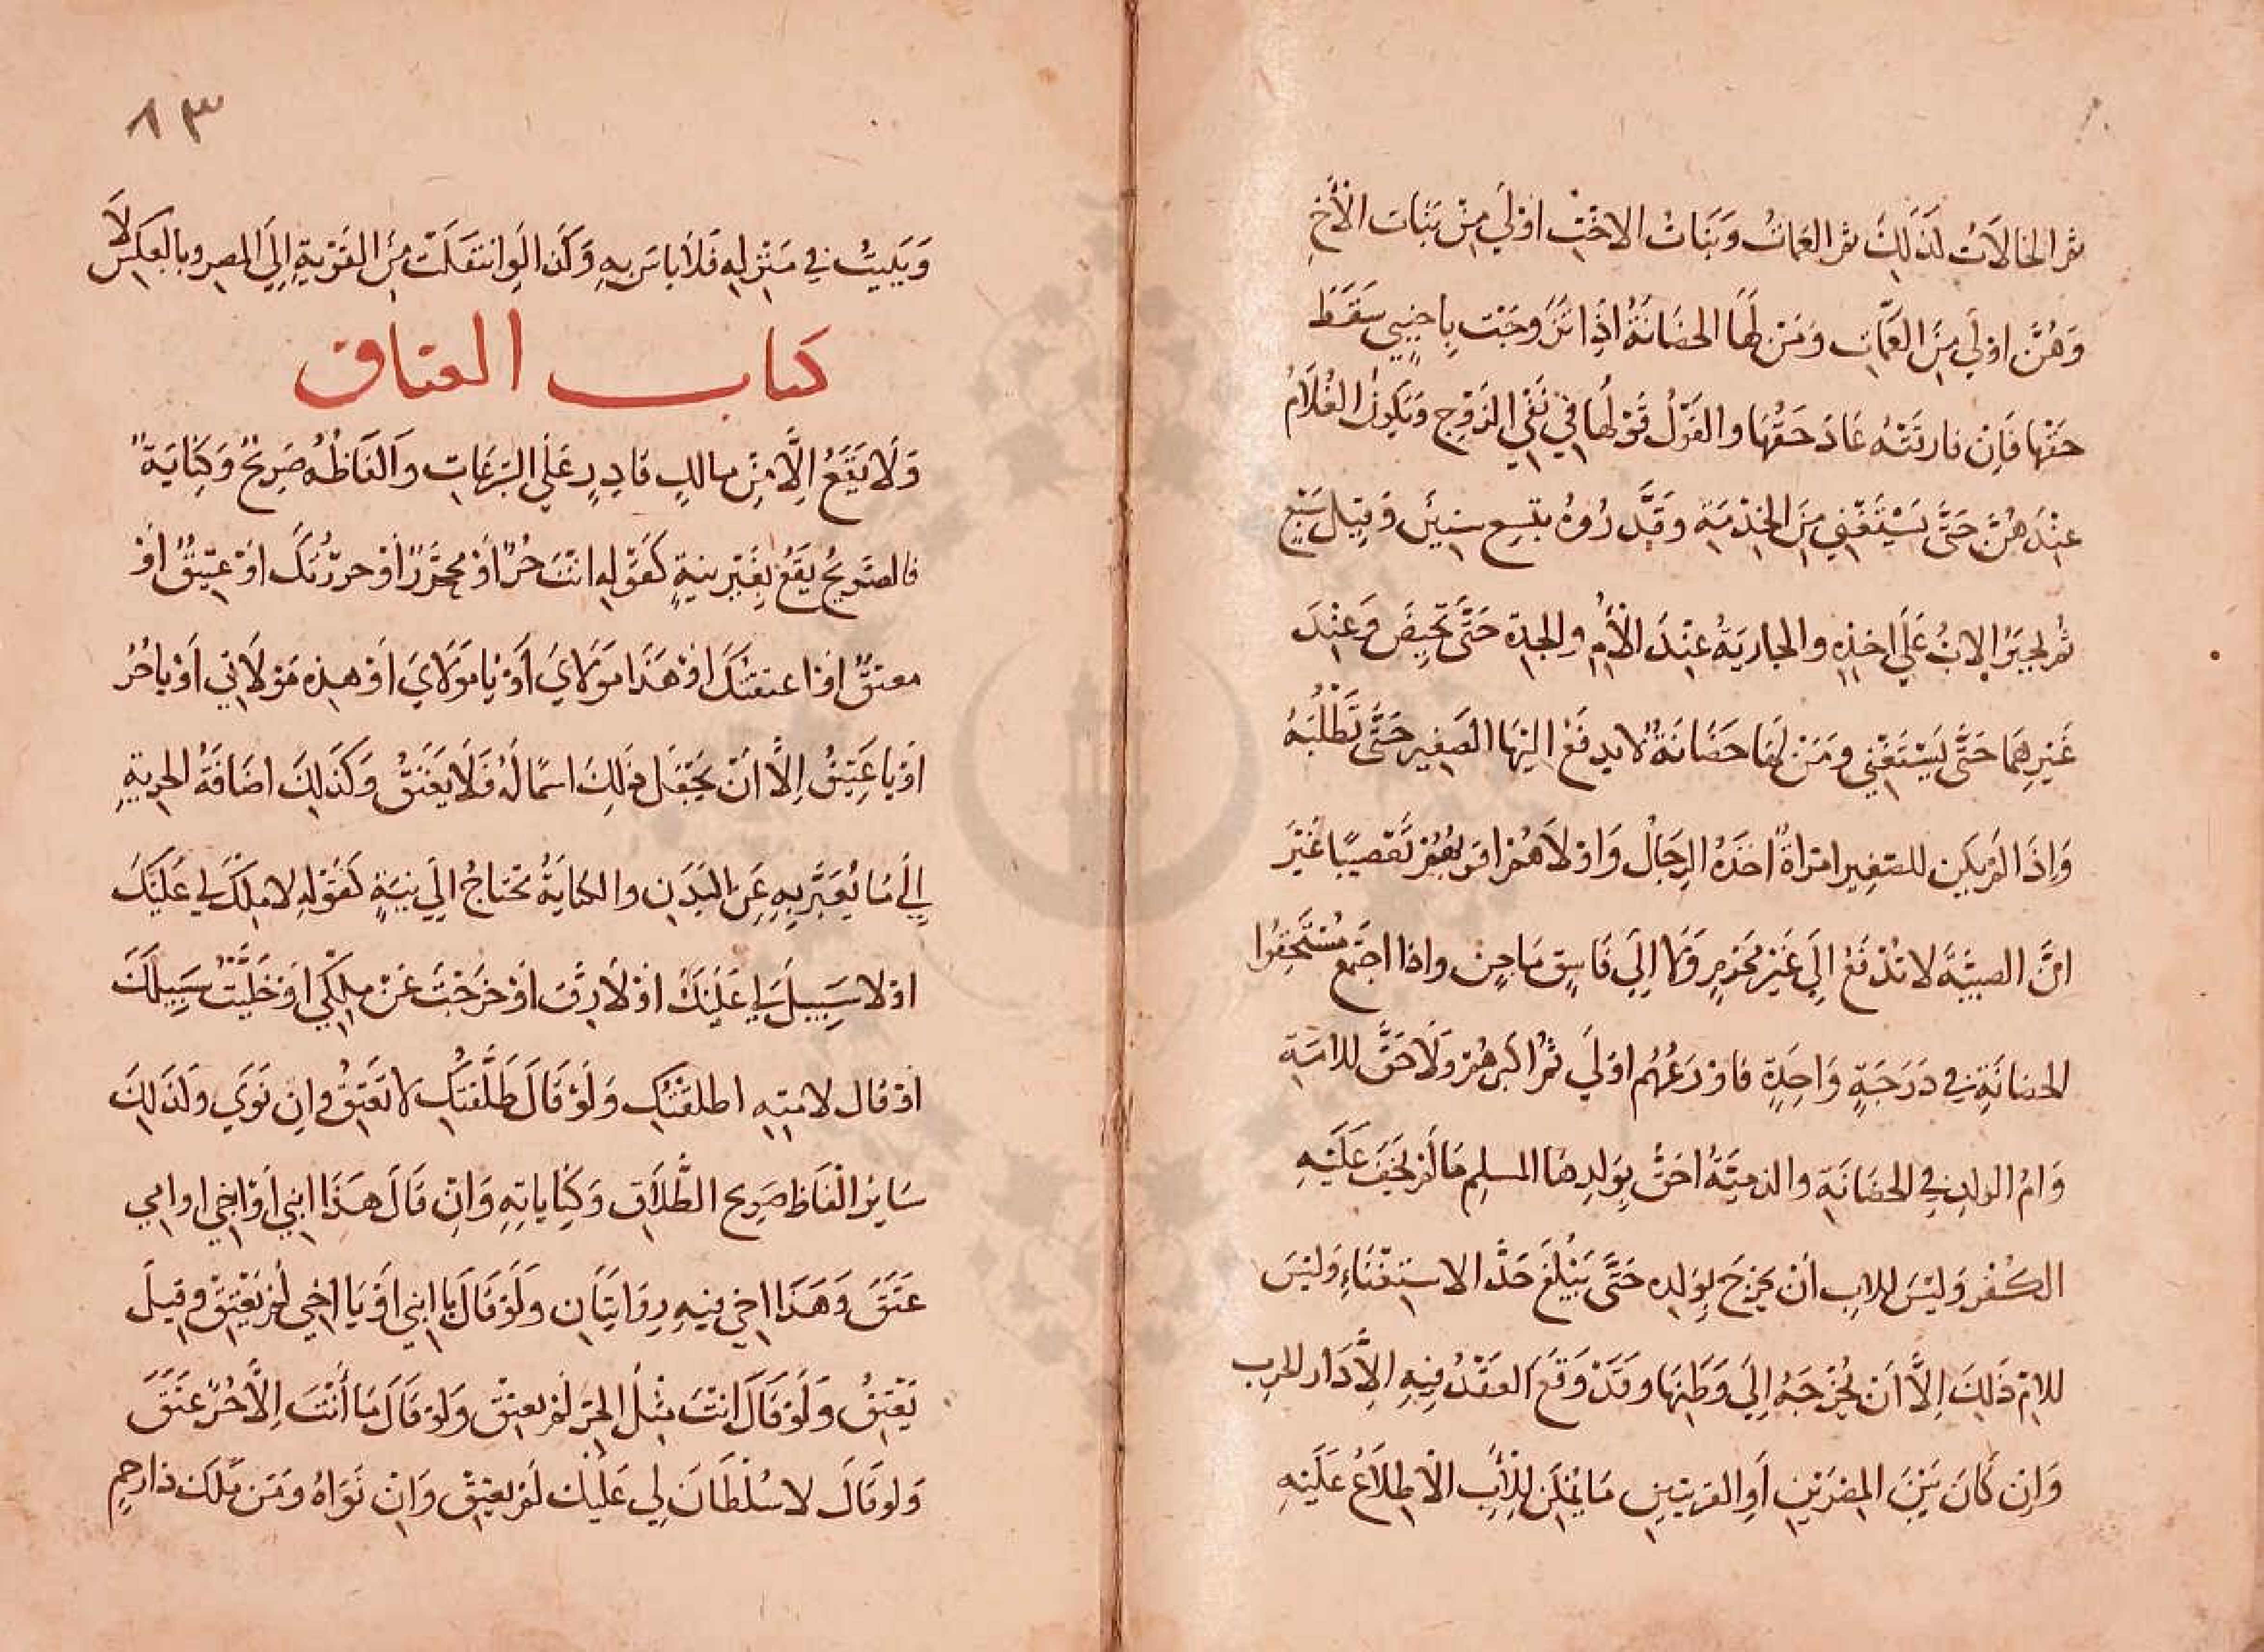 ثم الخالات كذلك ثم العمات وبنات الاخت اولي من بنات الأخ
وهن اولي من العمات ومن لها الحضانة اذا تزوجت باجنبي سقط
حقها فإن فارقته عاد حقها والقول قولها في نفي الزوج ويكون الغلام
عندهن حتى يستغني عن الخدمة وقدروه بتسع سنين وقيل سبع
ثم يجبر الاب علي اخذه والجارية عند الأم والجدة حتى تحيض وعند
غيرهما حتى يستغني ومن لها حضانة لا يدفع اليها الصغير حتى تطلبه
واذا لم يكن للصغير امراة اخذه الرجال واولاهم اقربهم تعصيبا غير
ان الصبية لا تدفع الي غير محرم ولا الي فاسق ماجن واذا اجتمع مستحقوا
الحضانة في درجة واحدة فاورعهم اولي ثم اكبرهم ولا حق للامة
وام الولد في الحضانة والذمية احق بولدها المسلم ما لم يخف عليه
الكفر وليس للاب أن يخرج بولده حتى يبلغ حد الاستغناء وليس
للام ذلك إلا أن تخرجه إلي وطنها وقد وقع العقد فيه إلا دار الحرب
وان كان بين المصرين أو القريتين ما يمكن للأب الاطلاع عليه
٨٣
ويبيت في منزله فلا باس به وكذا لو انتقلت من القرية إلي المصر وبالعكس لا
كتاب العتاق
ولا يقع إلا من مالك قادر علي التبرعات والفاظه صريح وكناية
فالصريح يقع بغير نية كقوله انت حر أو محرر أو حررتك او عتيق او
معتق او اعتقتك او هذا مولاي أو يا مولاي أو هذه مولاتي أو يا حر
او يا عتيق إلا أن يجعل ذلك اسما له فلا يعتق وكذلك اضافة الحرية
إلى ما يعبر به عن البدن والكناية تحتاج الي نية كقوله لا ملك لي عليك
او لا سبيل لي عليك او لا رق او خرجت عن ملكي او خليت سبيلك
او قال لامته اطلقتك ولو قال طلقتك لا تعتق وان نوي وكذلك
ساير الفاظ صريح الطلاق وكناياته وان قال هذا ابني أو ابي او امي
عتق وهذا اخي فيه روايتان ولو قال يا ابني أو يا اخي لم يعتق وقيل
يعتق ولو قال انت مثل الحر لم يعتق ولو قال ما أنت إلا حر عتق
ولو قال لا سلطان لي عليك لم يعتق وان نواه ومن ملك ذا رحم